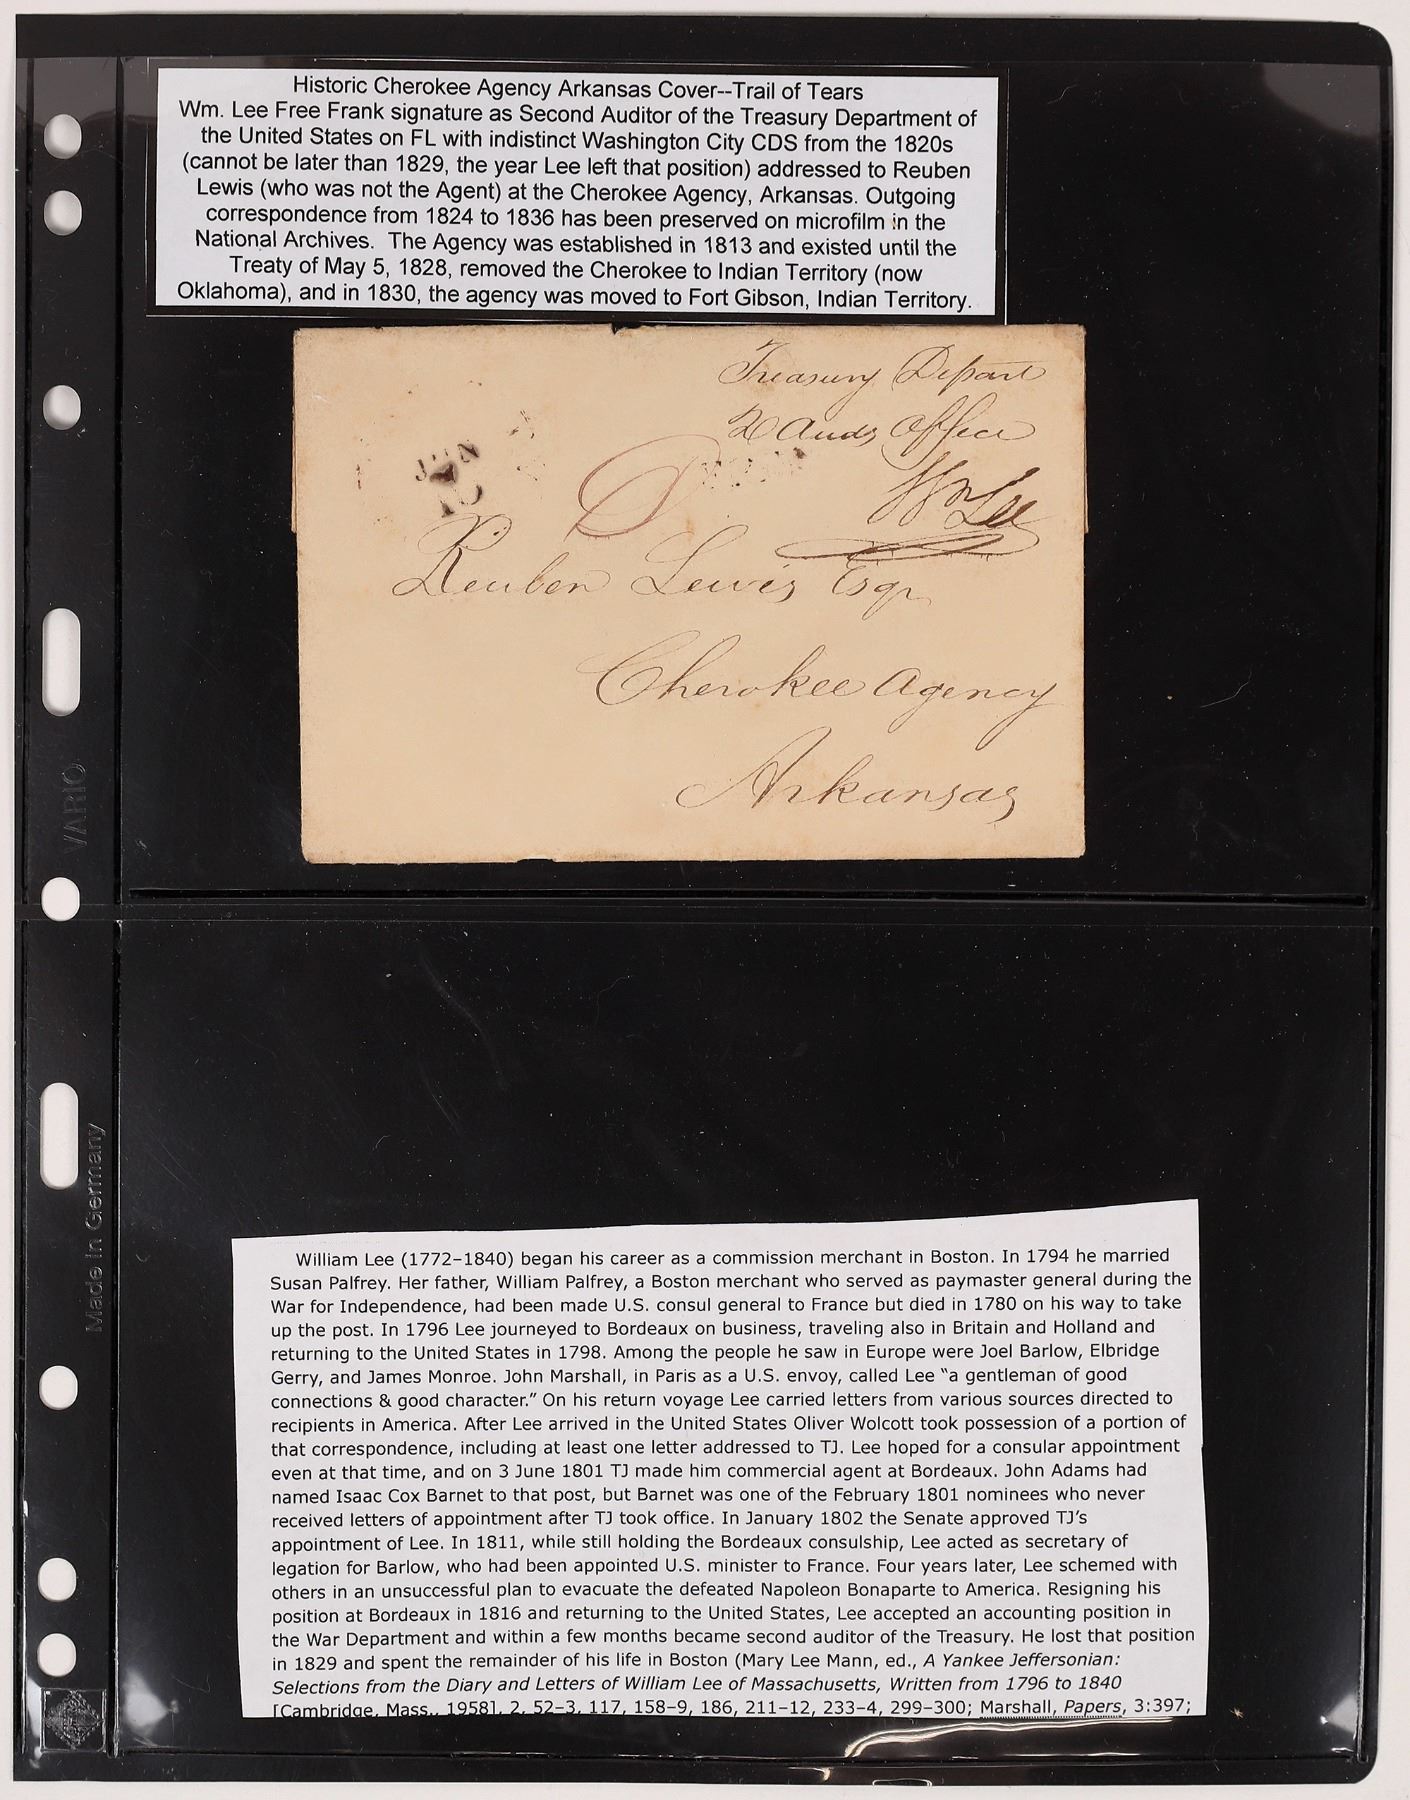 Historic Cherokee Agency Arkansas Cover--Trail of Tears
Wm. Lee Free Frank signature as Second Auditor of the Treasury Department of
the United States on FL with indistinct Washington City CDS from the 1820s
(cannot be later than 1829, the year Lee left that position) addressed to Reuben
Lewis (who was not the Agent) at the Cherokee Agency, Arkansas. Outgoing
correspondence from 1824 to 1836 has been preserved on microfilm in the
National Archives.  The Agency was established in 1813 and existed until the
Treaty of May 5, 1828, removed the Cherokee to Indian Territory (now
Oklahoma), and in 1830, the agency was moved to Fort Gibson, Indian Territory.
Treasury Depart
2d Auds Office
Wm Lee
JAN
Reuben Lewis Esqr
Cherokee Agency
Arkansas
VARIO
Made in Germany
William Lee (1772–1840) began his career as a commission merchant in Boston. In 1794 he married
Susan Palfrey. Her father, William Palfrey, a Boston merchant who served as paymaster general during the
War for Independence, had been made U.S. consul general to France but died in 1780 on his way to take
up the post. In 1796 Lee journeyed to Bordeaux on business, traveling also in Britain and Holland and
returning to the United States in 1798. Among the people he saw in Europe were Joel Barlow, Elbridge
Gerry, and James Monroe. John Marshall, in Paris as a U.S. envoy, called Lee “a gentleman of good
connections & good character.” On his return voyage Lee carried letters from various sources directed to
recipients in America. After Lee arrived in the United States Oliver Wolcott took possession of a portion of
that correspondence, including at least one letter addressed to TJ. Lee hoped for a consular appointment
even at that time, and on 3 June 1801 TJ made him commercial agent at Bordeaux. John Adams had
named Isaac Cox Barnet to that post, but Barnet was one of the February 1801 nominees who never
received letters of appointment after TJ took office. In January 1802 the Senate approved TJ’s
appointment of Lee. In 1811, while still holding the Bordeaux consulship, Lee acted as secretary of
legation for Barlow, who had been appointed U.S. minister to France. Four years later, Lee schemed with
others in an unsuccessful plan to evacuate the defeated Napoleon Bonaparte to America. Resigning his
position at Bordeaux in 1816 and returning to the United States, Lee accepted an accounting position in
the War Department and within a few months became second auditor of the Treasury. He lost that position
in 1829 and spent the remainder of his life in Boston (Mary Lee Mann, ed., A Yankee Jeffersonian:
Selections from the Diary and Letters of William Lee of Massachusetts, Written from 1796 to 1840
[Cambridge, Mass., 1958], 2, 52–3, 117, 158–9, 186, 211–12, 233–4, 299–300; Marshall, Papers, 3:397;